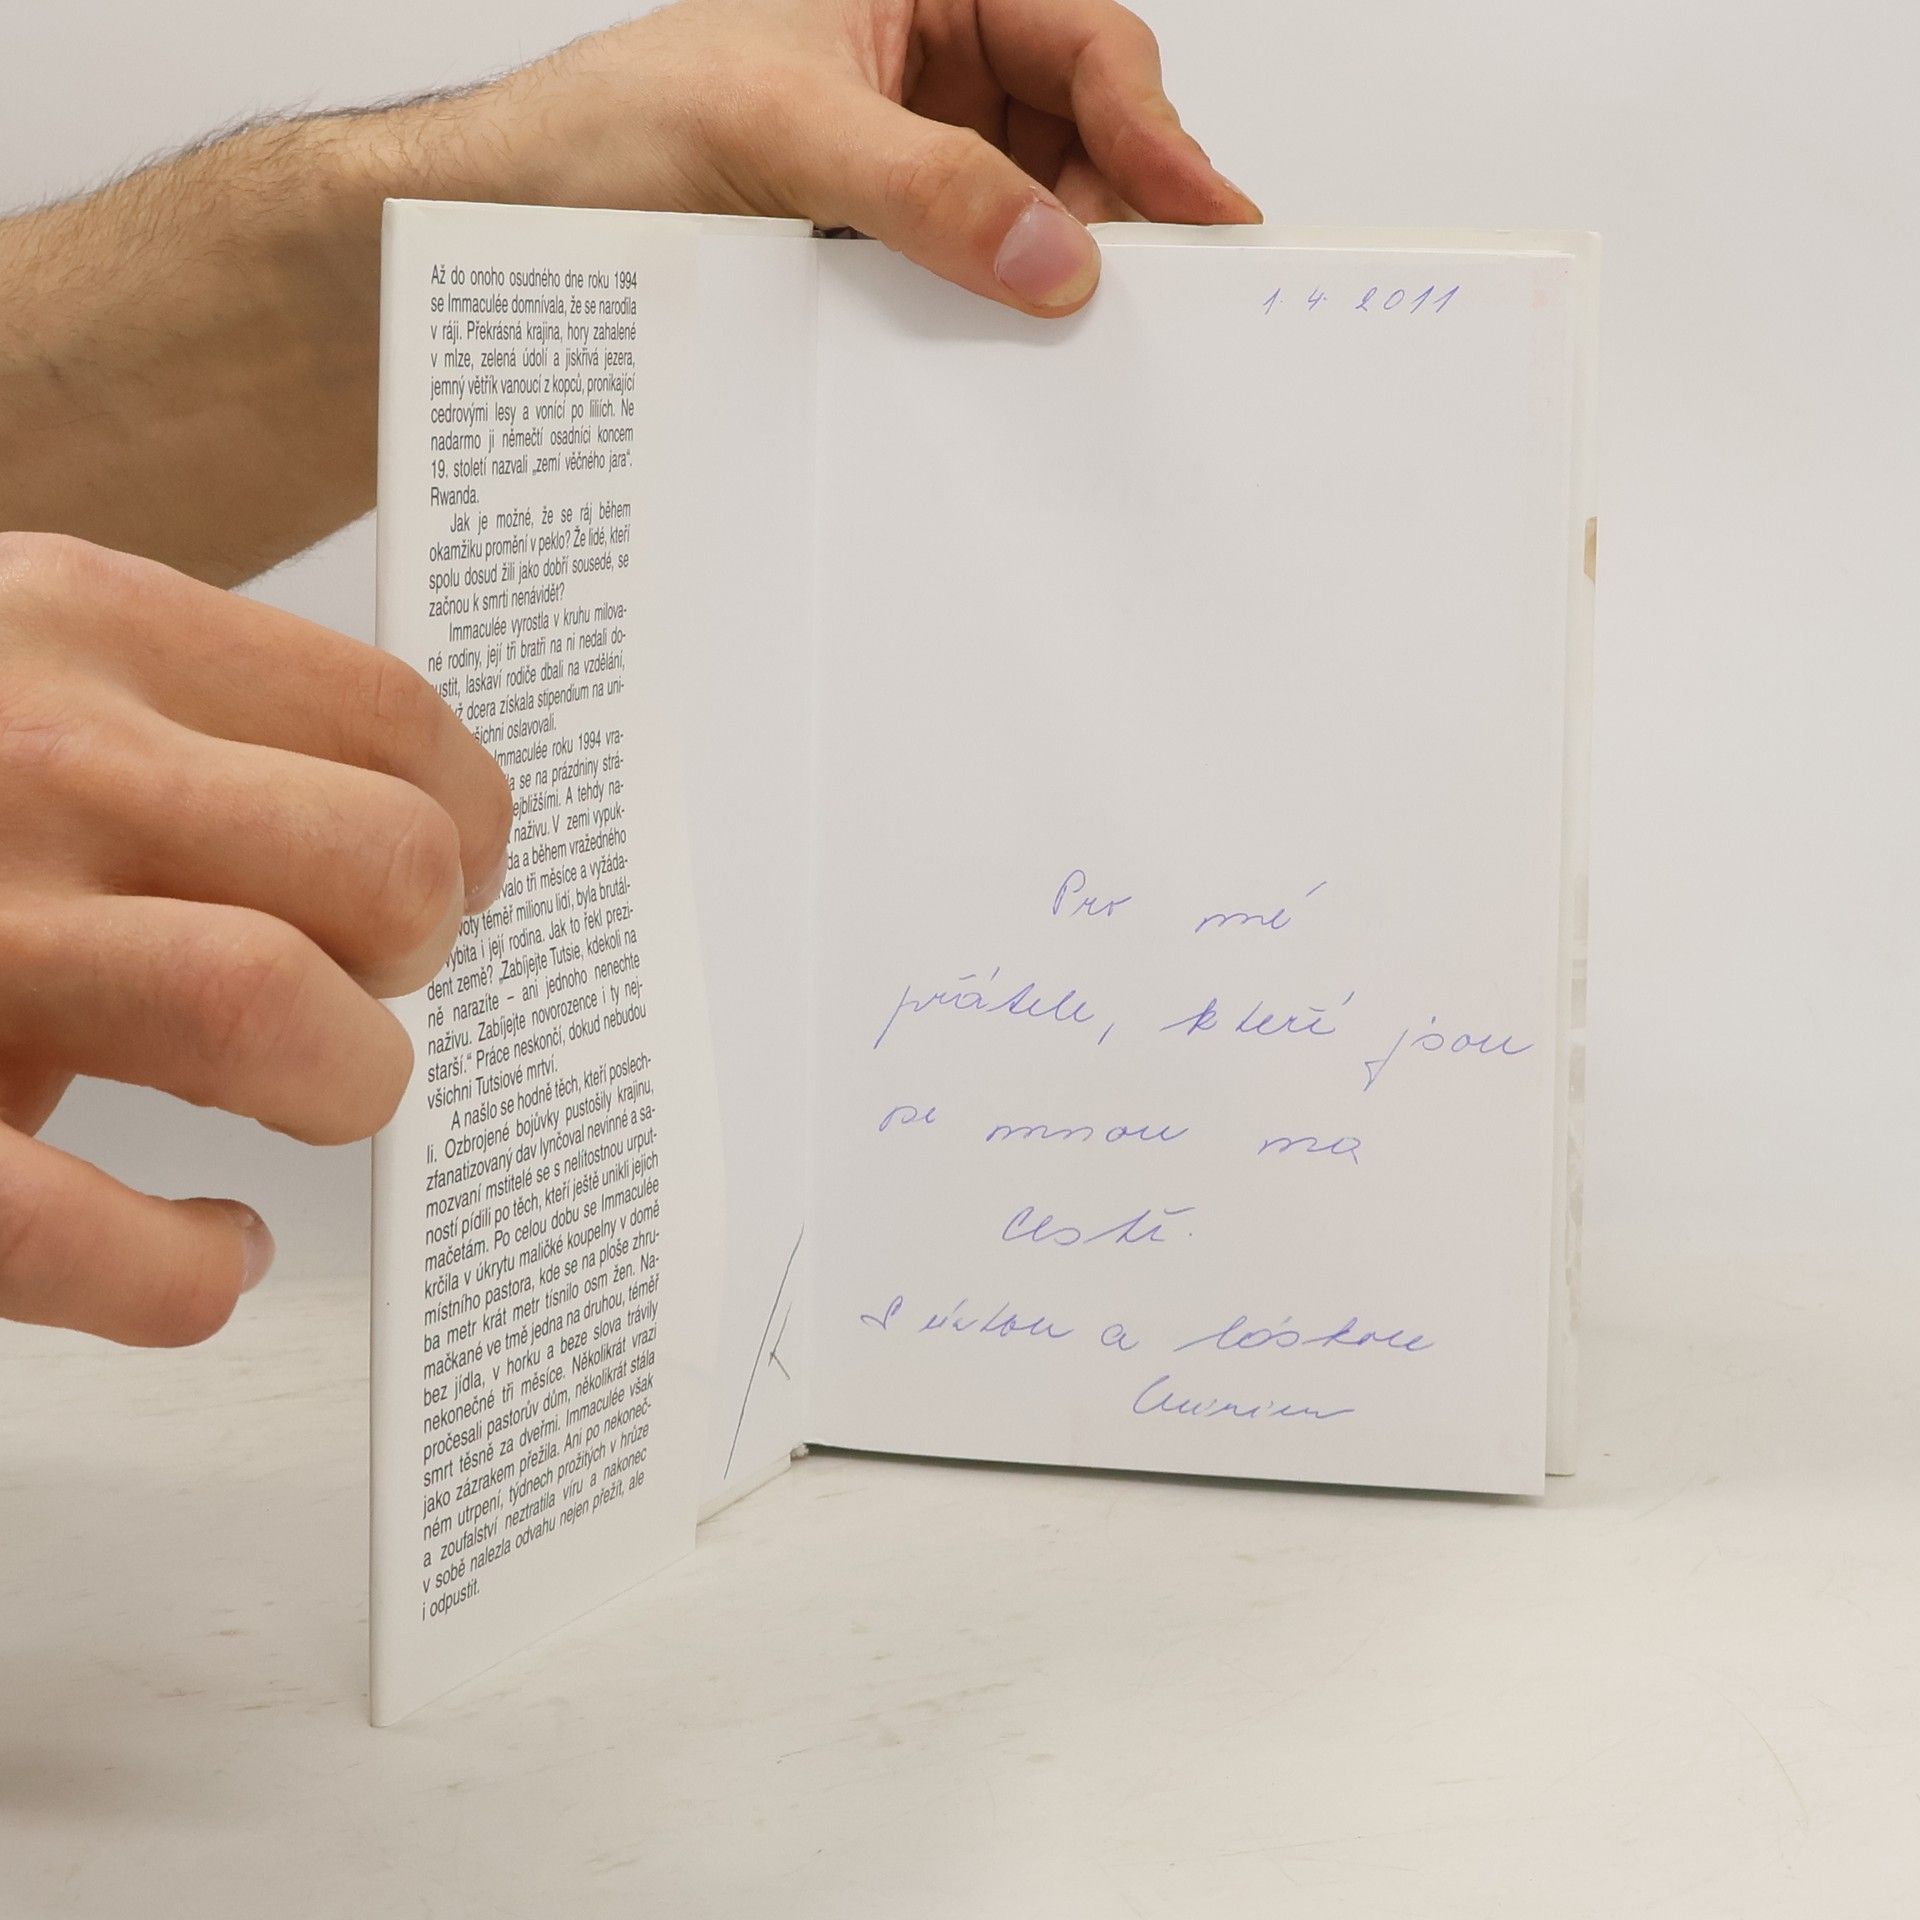 Až do onoho osudného dne roku 1994
se Immaculée domnívala, že se narodila
v ráji. Překrásná krajina, hory zahalené
v mlze, zelená údolí a jiskřivá jezera,
jemný větřík vanoucí z kopců, pronikající
cedrovými lesy a vonící po liliích. Ne
nadarmo ji němečtí osadníci koncem
19. století nazvali „zemí věčného jara“.
Rwanda.
Jak je možné, že se ráj během
okamžiku promění v peklo? Že lidé, kteří
spolu dosud žili jako dobří sousedé, se
začnou k smrti nenávidět?
Immaculée vyrostla v kruhu milova-
né rodiny, její tři bratři na ni nedali do-
ustit, laskaví rodiče dbali na vzdělání,
yž dcera získala stipendium na uni-
šichni oslavovali.
Immaculée roku 1994 vra-
la se na prázdniny strá-
ejbližšími. A tehdy na-
naživu. V zemi vypuk-
da a během vražedného
valo tři měsíce a vyžáda-
voty téměř milionu lidí, byla brutál-
vybita i její rodina. Jak to řekl prezi-
dent země? „Zabíjejte Tutsie, kdekoli na
ně narazíte – ani jednoho nenechte
naživu. Zabíjejte novorozence i ty nej-
starší.“ Práce neskončí, dokud nebudou
všichni Tutsiové mrtví.
A našlo se hodně těch, kteří poslech-
li. Ozbrojené bojůvky pustošily krajinu,
zfanatizovaný dav lynčoval nevinné a sa-
mozvaní mstitelé se s nelítostnou urput-
ností pídili po těch, kteří ještě unikli jejich
mačetám. Po celou dobu se Immaculée
krčila v úkrytu maličké koupelny v domě
místního pastora, kde se na ploše zhru-
ba metr krát metr tísnilo osm žen. Na-
mačkané ve tmě jedna na druhou, téměř
bez jídla, v horku a beze slova trávily
nekonečné tři měsíce. Několikrát vrazi
pročesali pastorův dům, několikrát stála
smrt těsně za dveřmi. Immaculée však
jako zázrakem přežila. Ani po nekoneč-
ném utrpení, týdnech prožitých v hrůze
a zoufalství neztratila víru a nakonec
v sobě nalezla odvahu nejen přežít, ale
i odpustit.
1. 4. 2011
Pro mé
přátele, kteří jsou
se mnou na
cestě.
S úctou a láskou